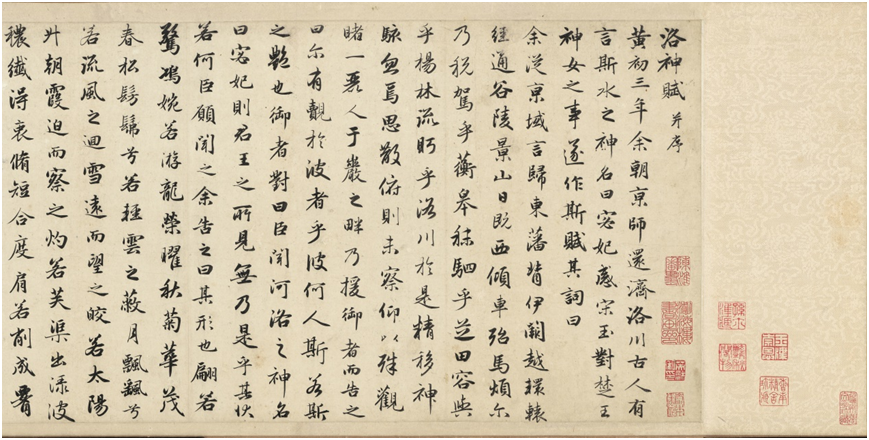 洛神賦 并序
黄初三年余朝京師還濟洛川古人有
言斯水之神名曰宓妃感宋玉對楚王
神女之事遂作斯賦其詞曰
余從京域言歸東藩背伊闕越轘轅
經通谷陵景山日既西傾車殆馬煩尔
乃税駕乎蘅皋秣駟乎芝田容與
乎楊林流眄乎洛川於是精移神
駭忽焉思散俯則未察仰以殊觀
睹一麗人于巖之畔乃援御者而告之
曰尔有覿於彼者乎彼何人斯若斯
之艷也御者對曰臣聞河洛之神名
曰宓妃則君王之所見無乃是乎其狀
若何臣願聞之余告之曰其形也翩若
驚鴻婉若游龍榮曜秋菊華茂
春松髣髴兮若輕雲之蔽月飄颻兮
若流風之迴雪遠而望之皎若太陽
升朝霞迫而察之灼若芙渠出淥波
穠纖得衷脩短合度肩若削成